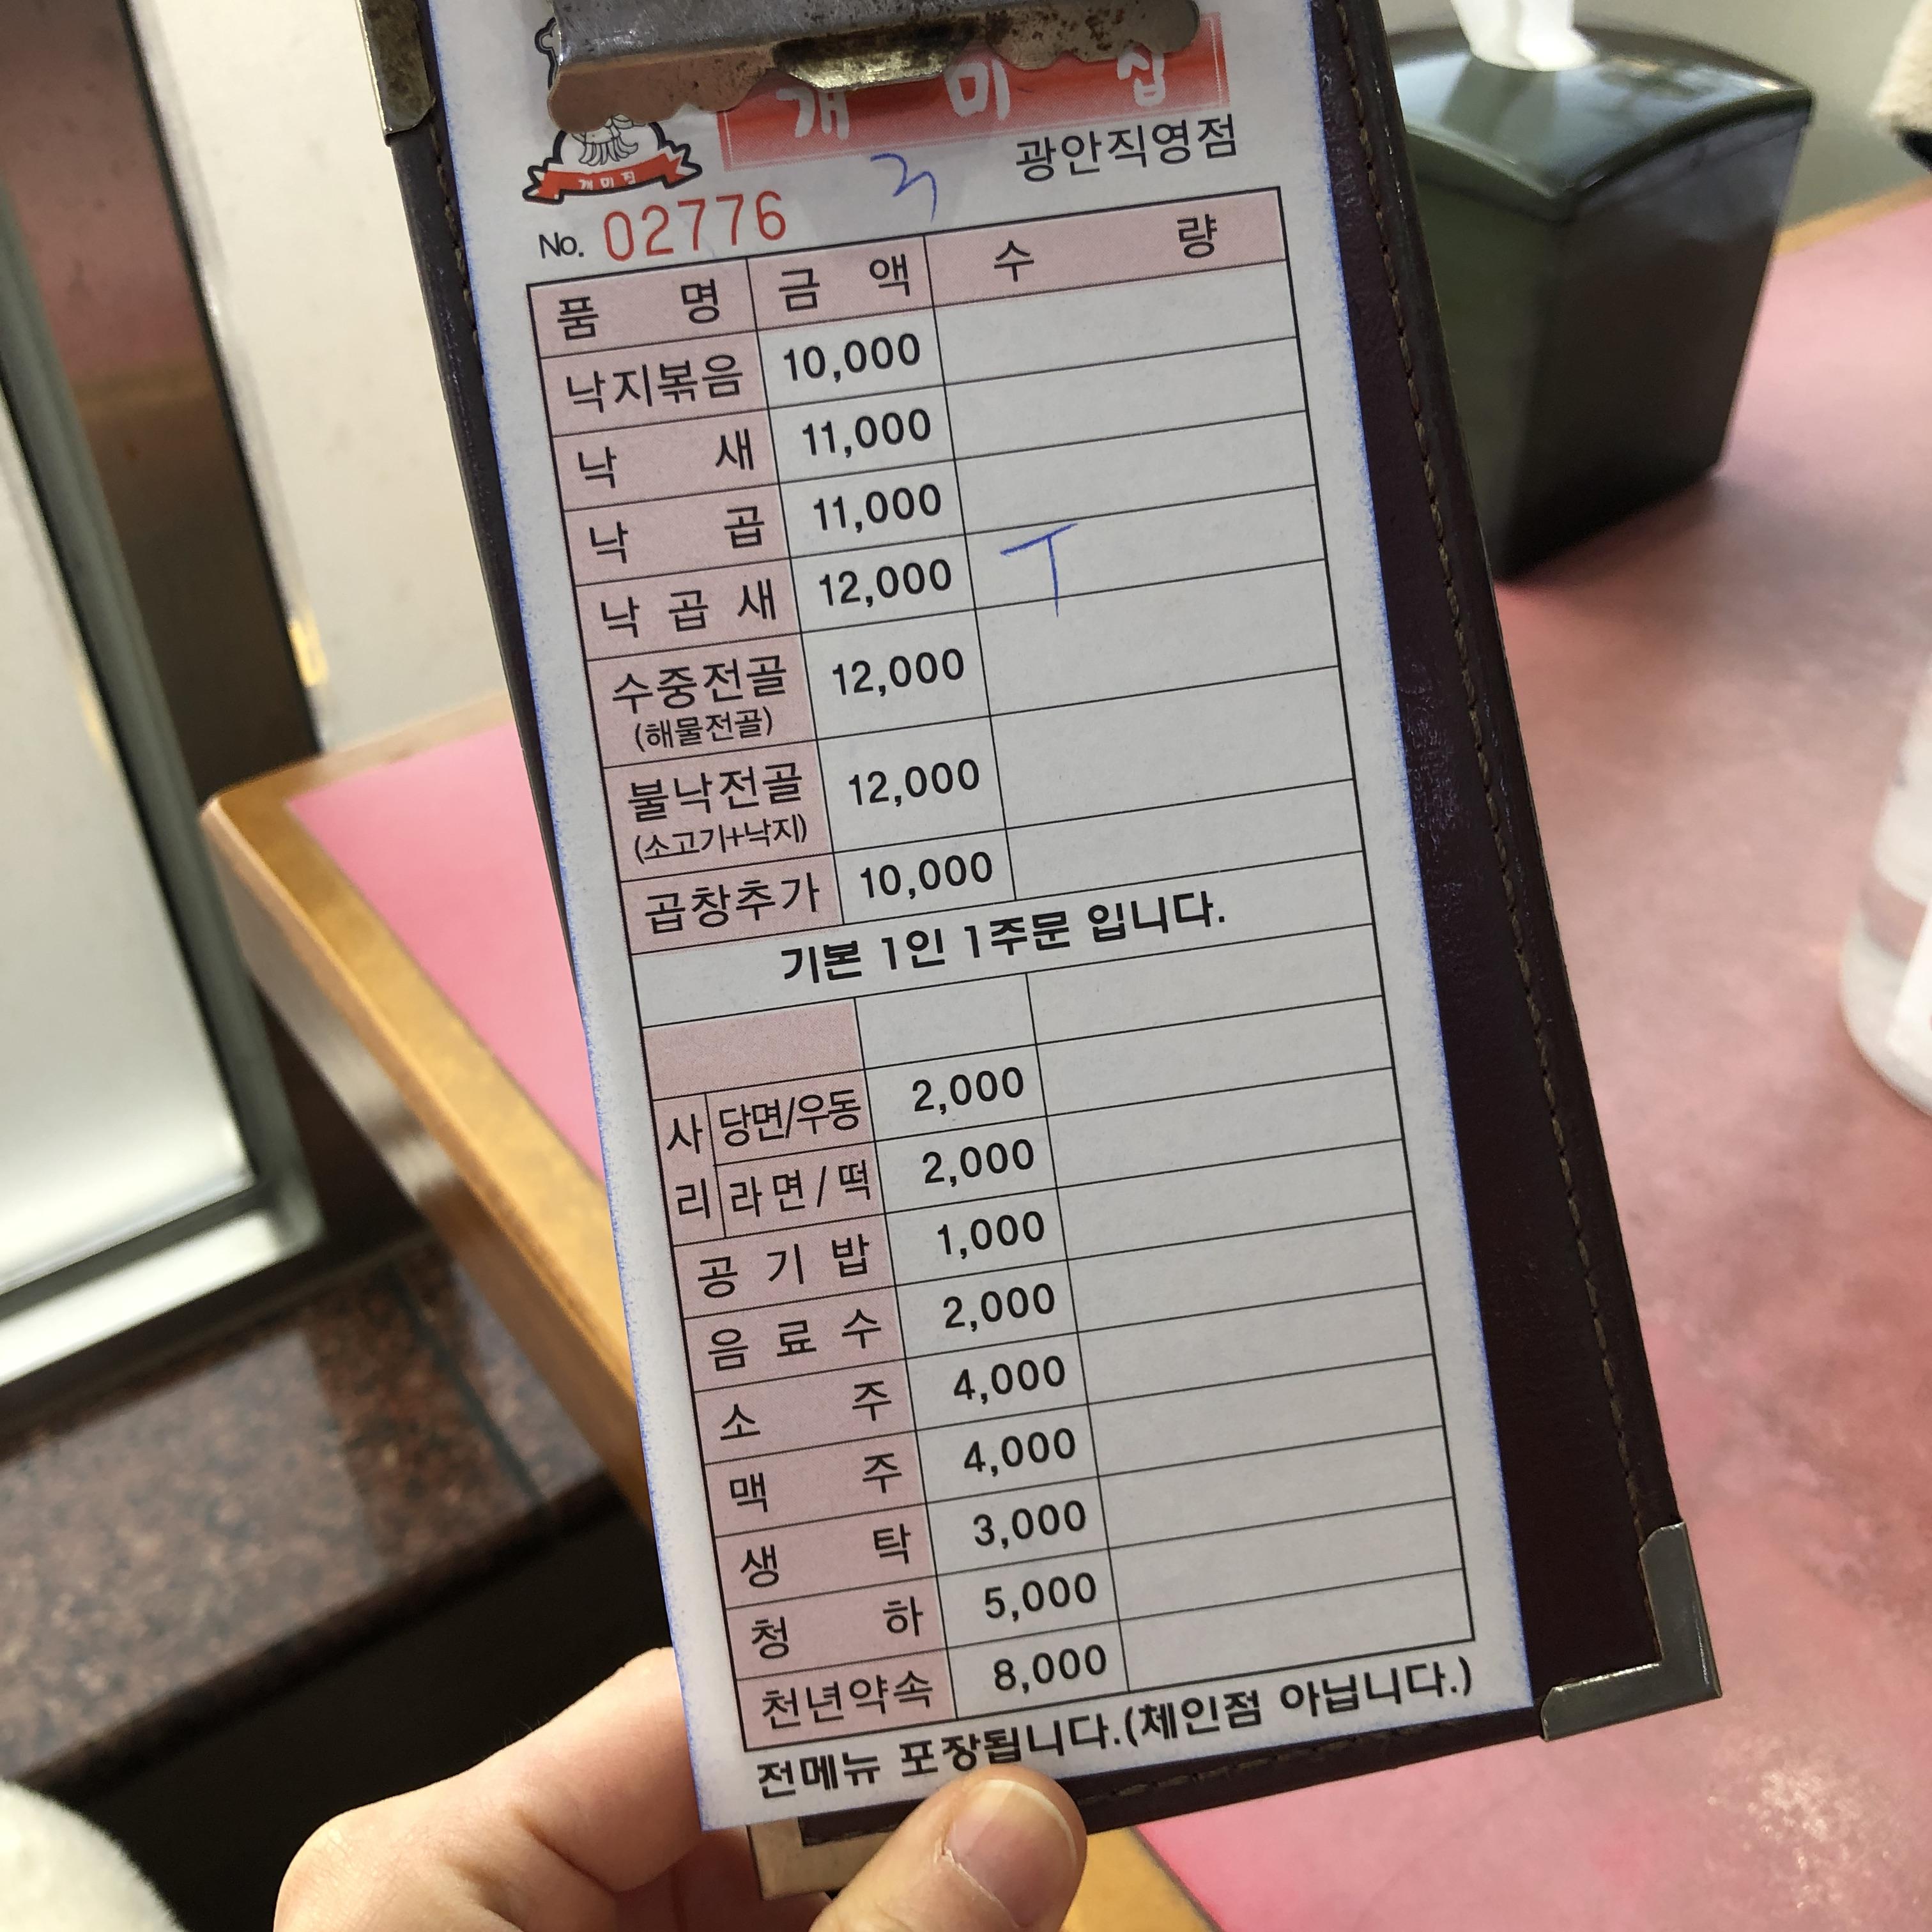 개미집
개미집
광안직영점
3
No. 02776
품 명 금 액 수 량
낙지볶음 10,000
낙 새 11,000
낙 곱 11,000
낙 곱 새 12,000 T
수중전골 12,000
(해물전골)
불낙전골 12,000
(소고기+낙지)
곱창추가 10,000
기본 1인 1주문 입니다.
사리 당면/우동 2,000
라면/떡 2,000
공 기 밥 1,000
음 료 수 2,000
소 주 4,000
맥 주 4,000
생 탁 3,000
청 하 5,000
천년약속 8,000
전메뉴 포장됩니다.(체인점 아닙니다.)